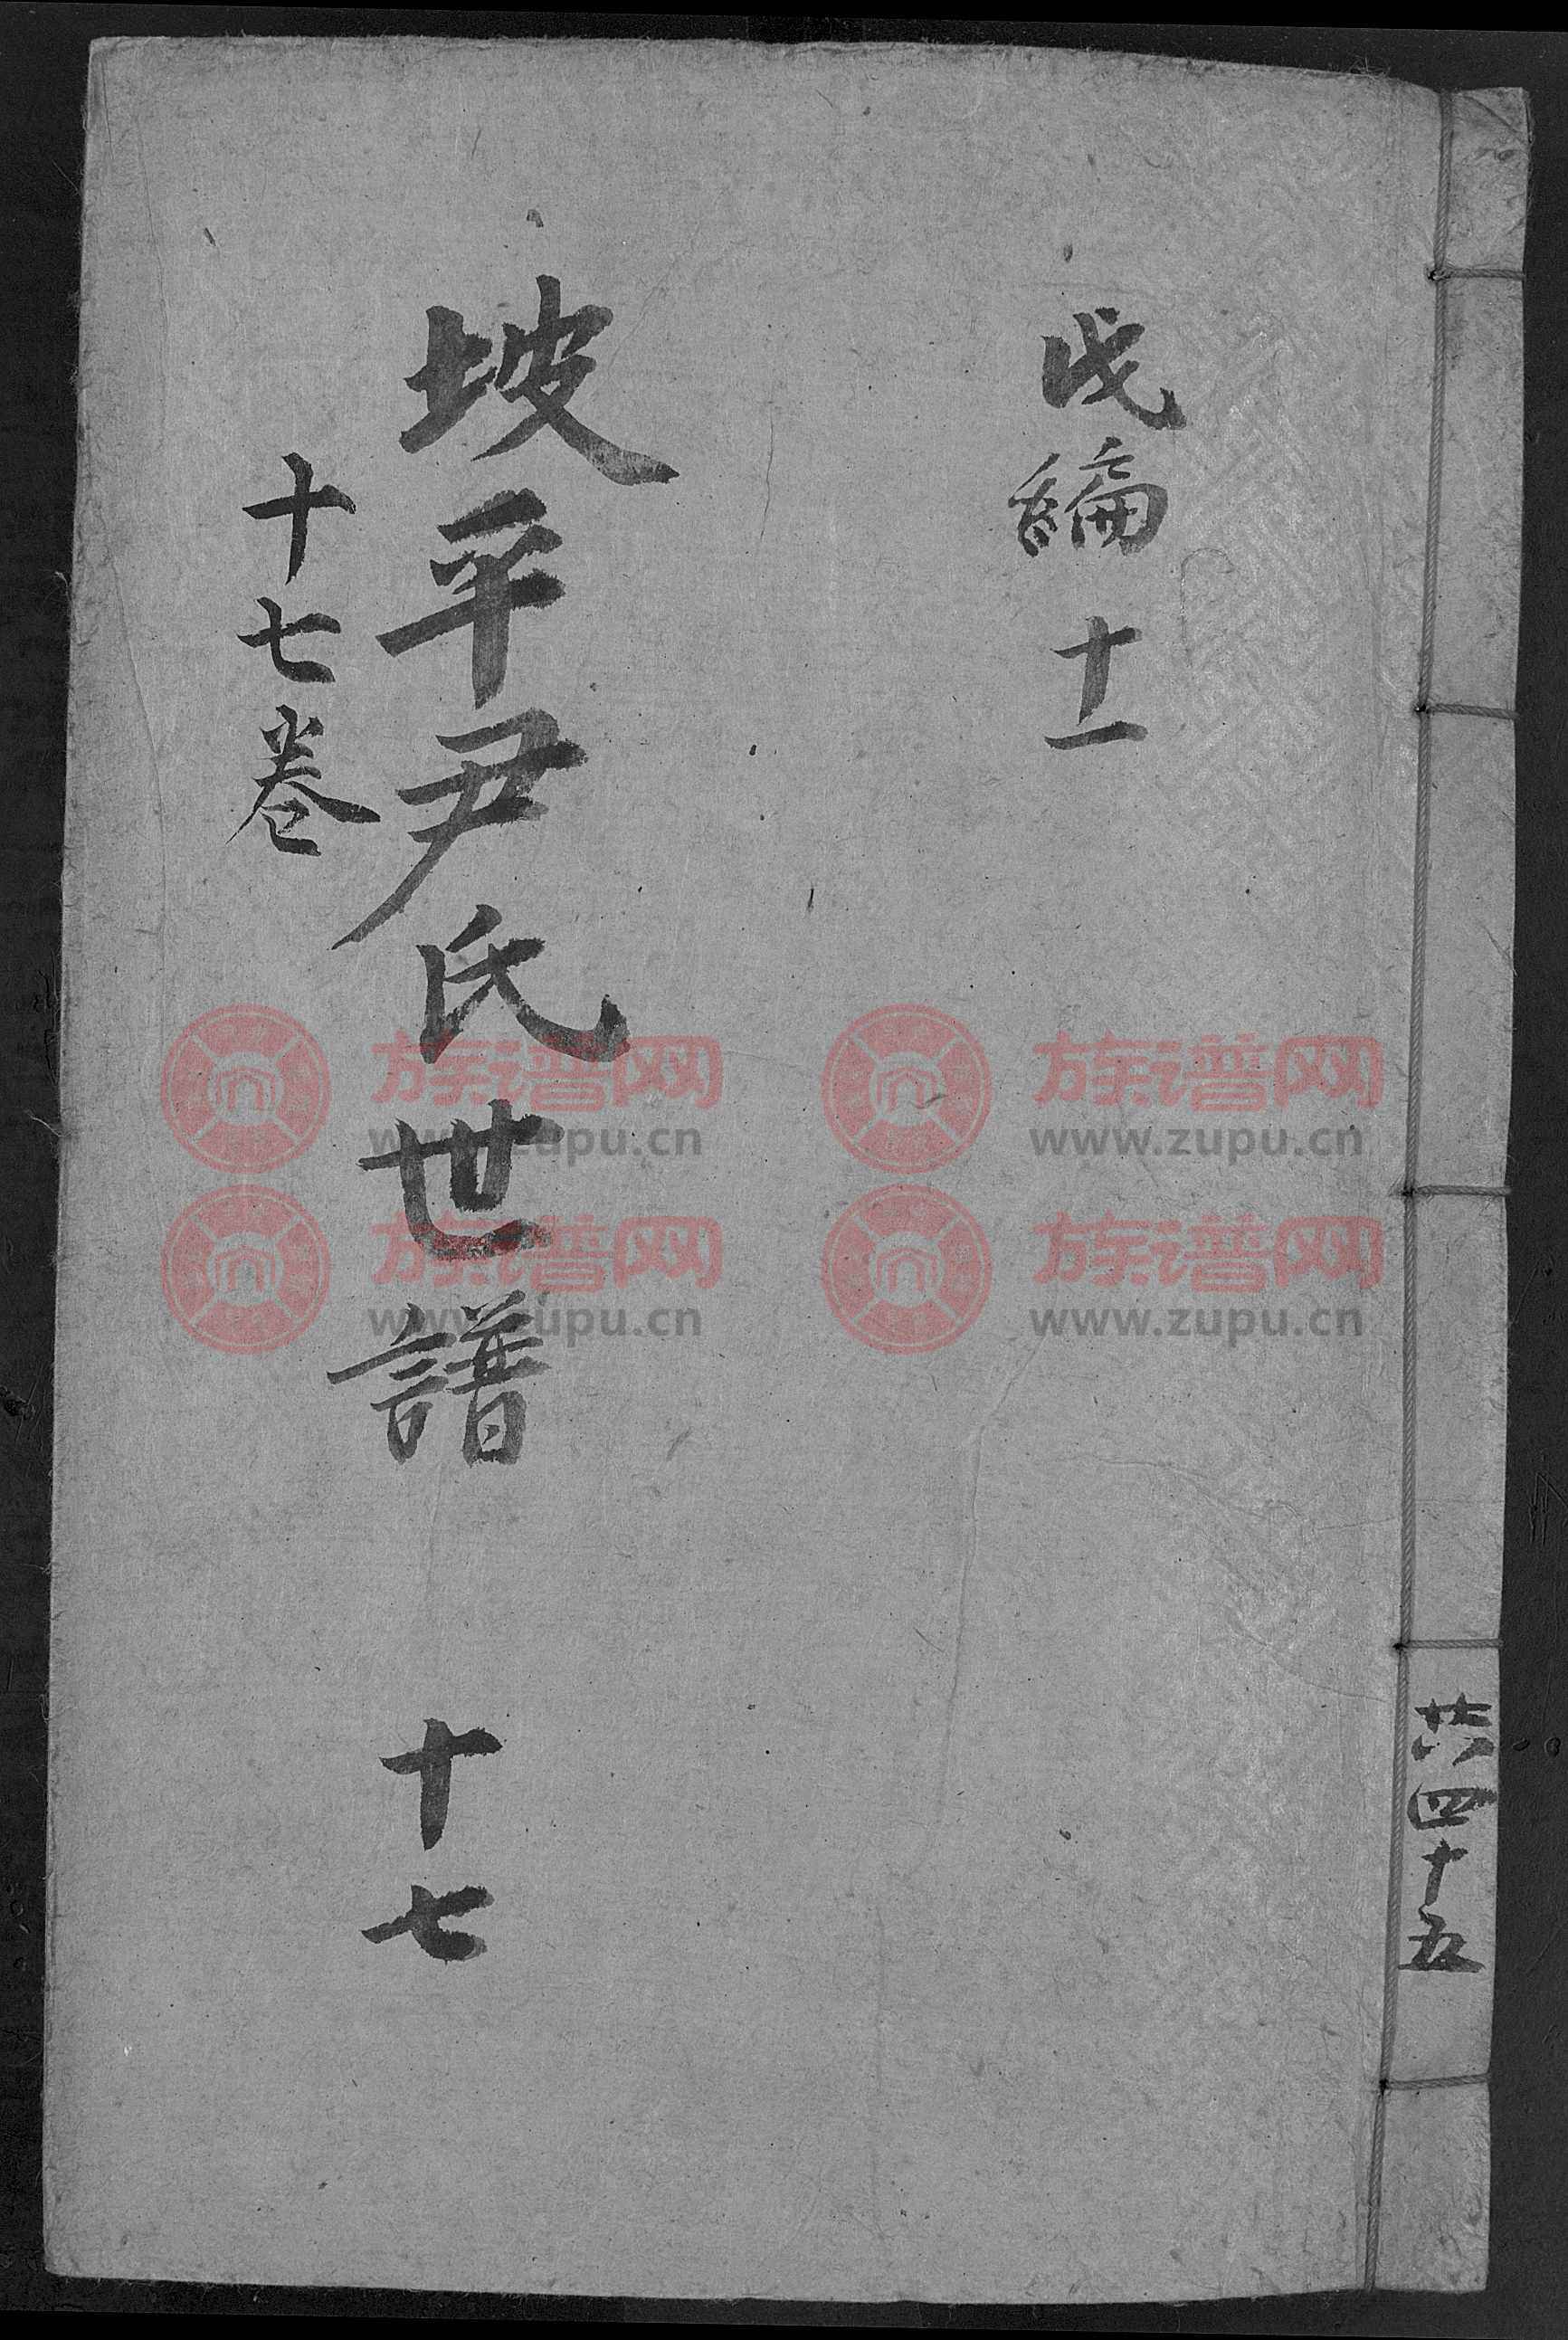 戊編 十一
坡平尹氏世譜 十七
十七卷
共四十五
族谱网
www.zupu.cn
族谱网
www.zupu.cn
族谱网
www.zupu.cn
族谱网
www.zupu.cn